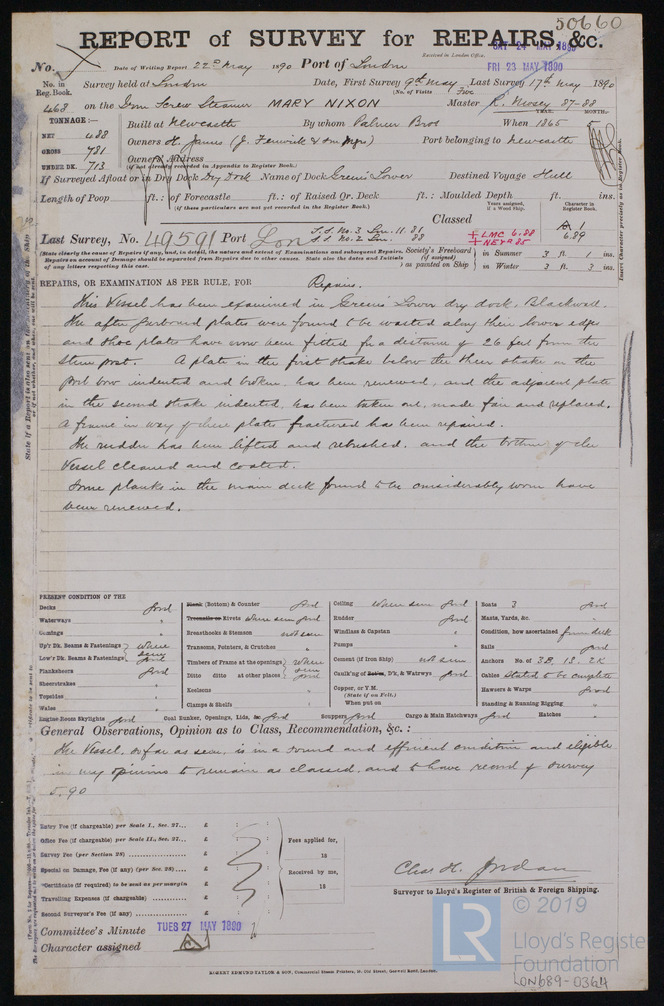 50660
REPORT of SURVEY for REPAIRS, &c.
Received in London Office.
SAT 24 MAY 1890
FRI 23 MAY 1890
No. Date of Writing Report 22nd May 1890 Port of London
No. in Reg. Book. Survey held at London Date, First Survey 9th May Last Survey 17th May 1890
(No. of Visits Five
468 on the Iron Screw Steamer MARY NIXON Master R. 87-88
TONNAGE:— YEAR. MONTH.
NET 488 Built at Newcastle By whom Palmer Bros When 1865 5
GROSS 781 Owners H. James (J. Fenwick & Son Mgrs) Port belonging to Newcastle
UNDER DK. 713 Owners' Address
(if not already recorded in Appendix to Register Book.)
If Surveyed Afloat or in Dry Dock Dry Dock Name of Dock Green's Lower Destined Voyage Hull
Length of Poop ft.: of Forecastle ft.: of Raised Qr. Deck ft.: Moulded Depth ft. ins.
(If these particulars are not yet recorded in the Register Book.)
Years assigned, if a Wood Ship. Character in Register Book.
Classed A 1
6.89
+ LMC 6.88
+ NE&B 85
Last Survey, No. 49591 Port Lon S.S. No. 3 Lon. 11 81
S.S. No. 2 Lon. 88
(State clearly the cause of Repairs if any, and, in detail, the nature and extent of Examinations and subsequent Repairs.
Repairs on account of Damage should be separated from Repairs due to other causes. State also the Dates and Initials
of any letters respecting this case.
Society's Freeboard (if assigned) as painted on Ship in Summer 3 ft. 1 ins.
in Winter 3 ft. 3 ins.
REPAIRS, OR EXAMINATION AS PER RULE, FOR Repairs.
This Vessel has been examined in Green's Lower dry dock, Blackwall.
The after garboard plates were found to be wasted along their lower edges
and shoe plates have now been fitted for a distance of 26 feet from the
stern post. A plate in the first strake below the sheer strake on the
port bow indented and broken, has been renewed, and the adjacent plate
in the second strake indented, has been taken out, made fair and replaced.
A frame in way of these plates fractured has been repaired.
The rudder has been lifted and rebushed. and the bottom of the
Vessel cleaned and coated.
Some planks in the main deck found to be considerably worn have
been renewed.
PRESENT CONDITION OF THE
Decks Good
Waterways "
Comings "
Up'r Dk. Beams & Fastenings where seen
Low'r Dk. Beams & Fastenings Good
Planksheers Good
Sheerstrakes "
Topsides "
Wales "
Engine Room Skylights Good Coal Bunker, Openings, Lids, &c Good Scuppers Good Cargo & Main Hatchways Good Hatches "
Plank (Bottom) & Counter Good
Treenails or Rivets where seen Good
Breasthooks & Stemson not seen
Transoms, Pointers, & Crutches "
Timbers of Frame at the openings where seen
Ditto ditto at other places Good
Keelsons "
Clamps & Shelfs "
Ceiling where seen Good
Rudder Good
Windlass & Capstan "
Pumps "
Cement (if Iron Ship) not seen
Caulking of Sides, D'k, & Watrwys Good
Copper, or Y.M. (State if on Felt.)
When put on
Boats 3 Good
Masts, Yards, &c. "
Condition, how ascertained from deck
Sails Good
Anchors No. of 3B, 1S. 2K
Cables stated to be complete
Hawsers & Warps Good
Standing & Running Rigging "
General Observations, Opinion as to Class, Recommendation, &c.:
The Vessel, so far as seen, is in a sound and efficient condition and eligible
in my opinion to remain as classed, and to have record of survey
5.90
Entry Fee (if chargeable) per Scale I., Sec. 27... £ : :
Office Fee (if chargeable) per Scale II., Sec. 27... £ : :
Survey Fee (per Section 28) £ : :
Special or Damage, Fee (if any) (per Sec. 28)... £ : :
*Certificate (if required) to be sent as per margin £ : :
Travelling Expenses (if chargeable) £ : :
Second Surveyor's Fee (if any) £ : :
Fees applied for,
18
Received by me,
18
Chas. H. Jordan
Surveyor to Lloyd's Register of British & Foreign Shipping.
Committee's Minute TUES 27 MAY 1890
Character assigned A 1
© 2019
LR
Lloyd's Register
Foundation
LON689-0364
ROBERT EDMUND TAYLOR & SON, Commercial Steam Printers, 19, Old Street, Goswell Road, London.